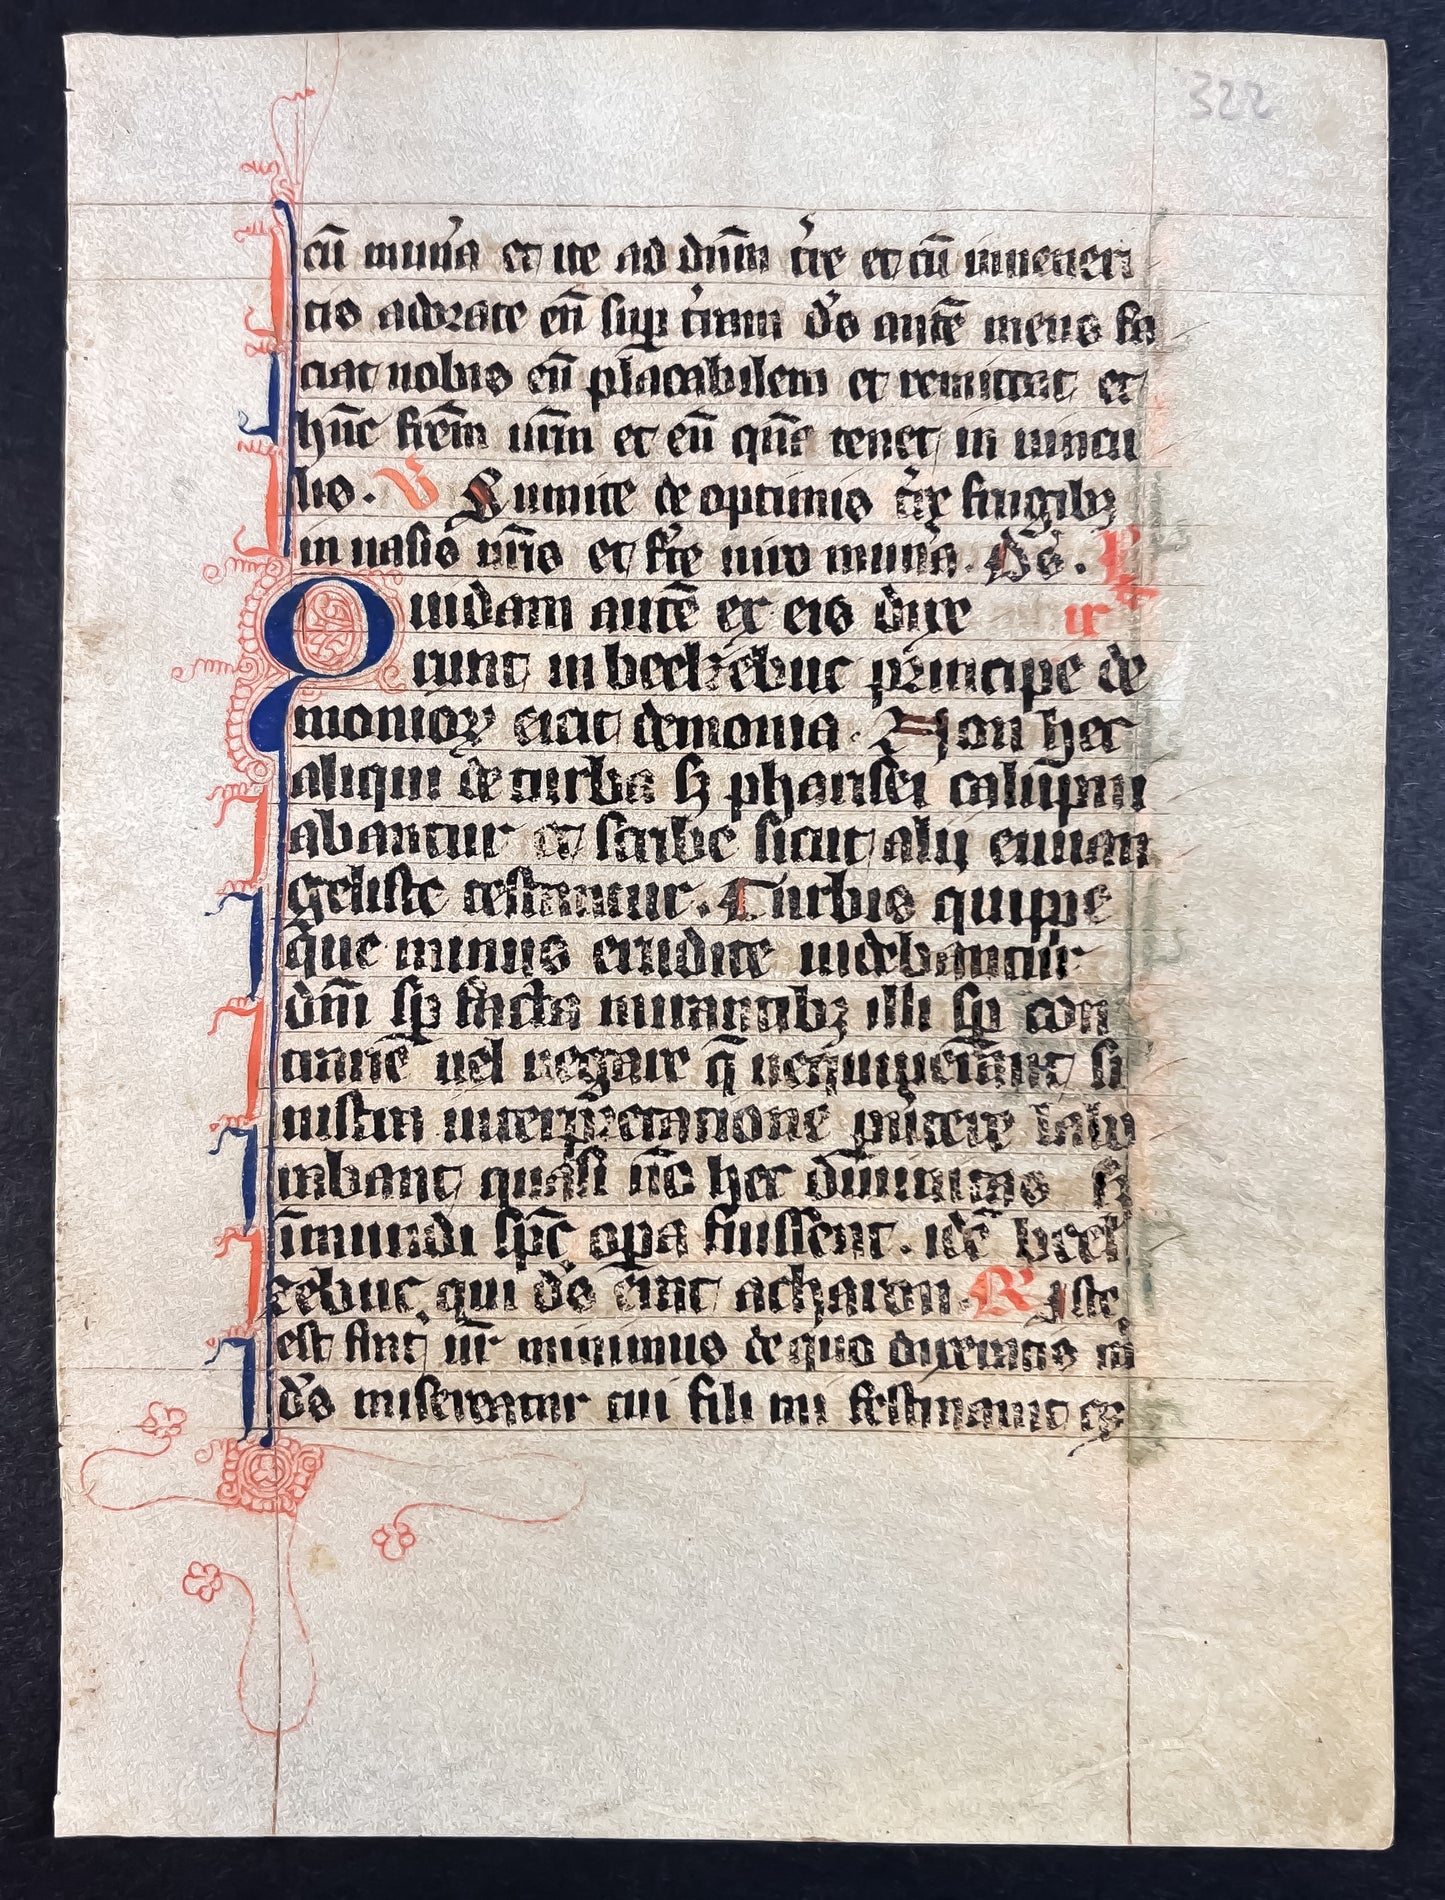 322
cū mun̉a et ite ad dn̄m t̉re et cū inueneri
tis adorate eū sup t̉ram d̉s autē meus fa
ciat uobis eū placabilem et remittat et
hūc fr̄em ur̄m et eū quē tenet in uincu
lis. V Sumite de optimis t̉re frugibꝫ
in uasis ur̄is et fr̉te uiro mun̉a. D̉s. 
Quidam autē ex eis dixe
runt in beelzebuc principe de
monioꝝ eicit demonia. Non hec
aliqui de turba sꝫ pharisei calūpni
abantur et scribe sicut alii euuan
geliste testantur. Turbis quippe
que minus erudite uidebantur
dn̄i sꝑ facta mirantibꝫ illi sꝑ con
tra uel negare q̄ nequiuerāt si
nistra interpretatione labo
rabant quasi nō hec diuinitas
īmundi sp̄c opa fuissent. idē beel
zebuc qui d̉s erat acharon. R Iste
est frat̉ ur̄ minimus de quo dixeratis m
d̉s misereatur tui fili mi festinauit qꝫ